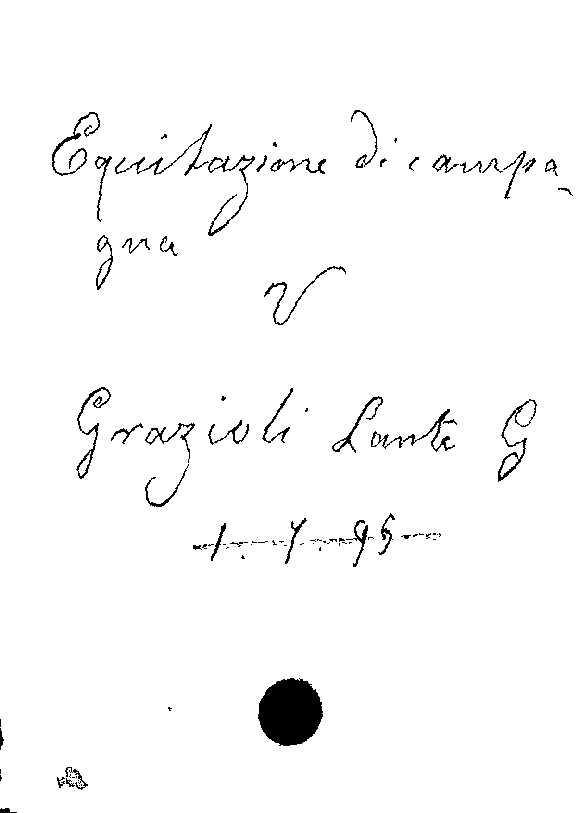 Equitazione di campa-
gna
V
Grazioli Lante G
1.7.95